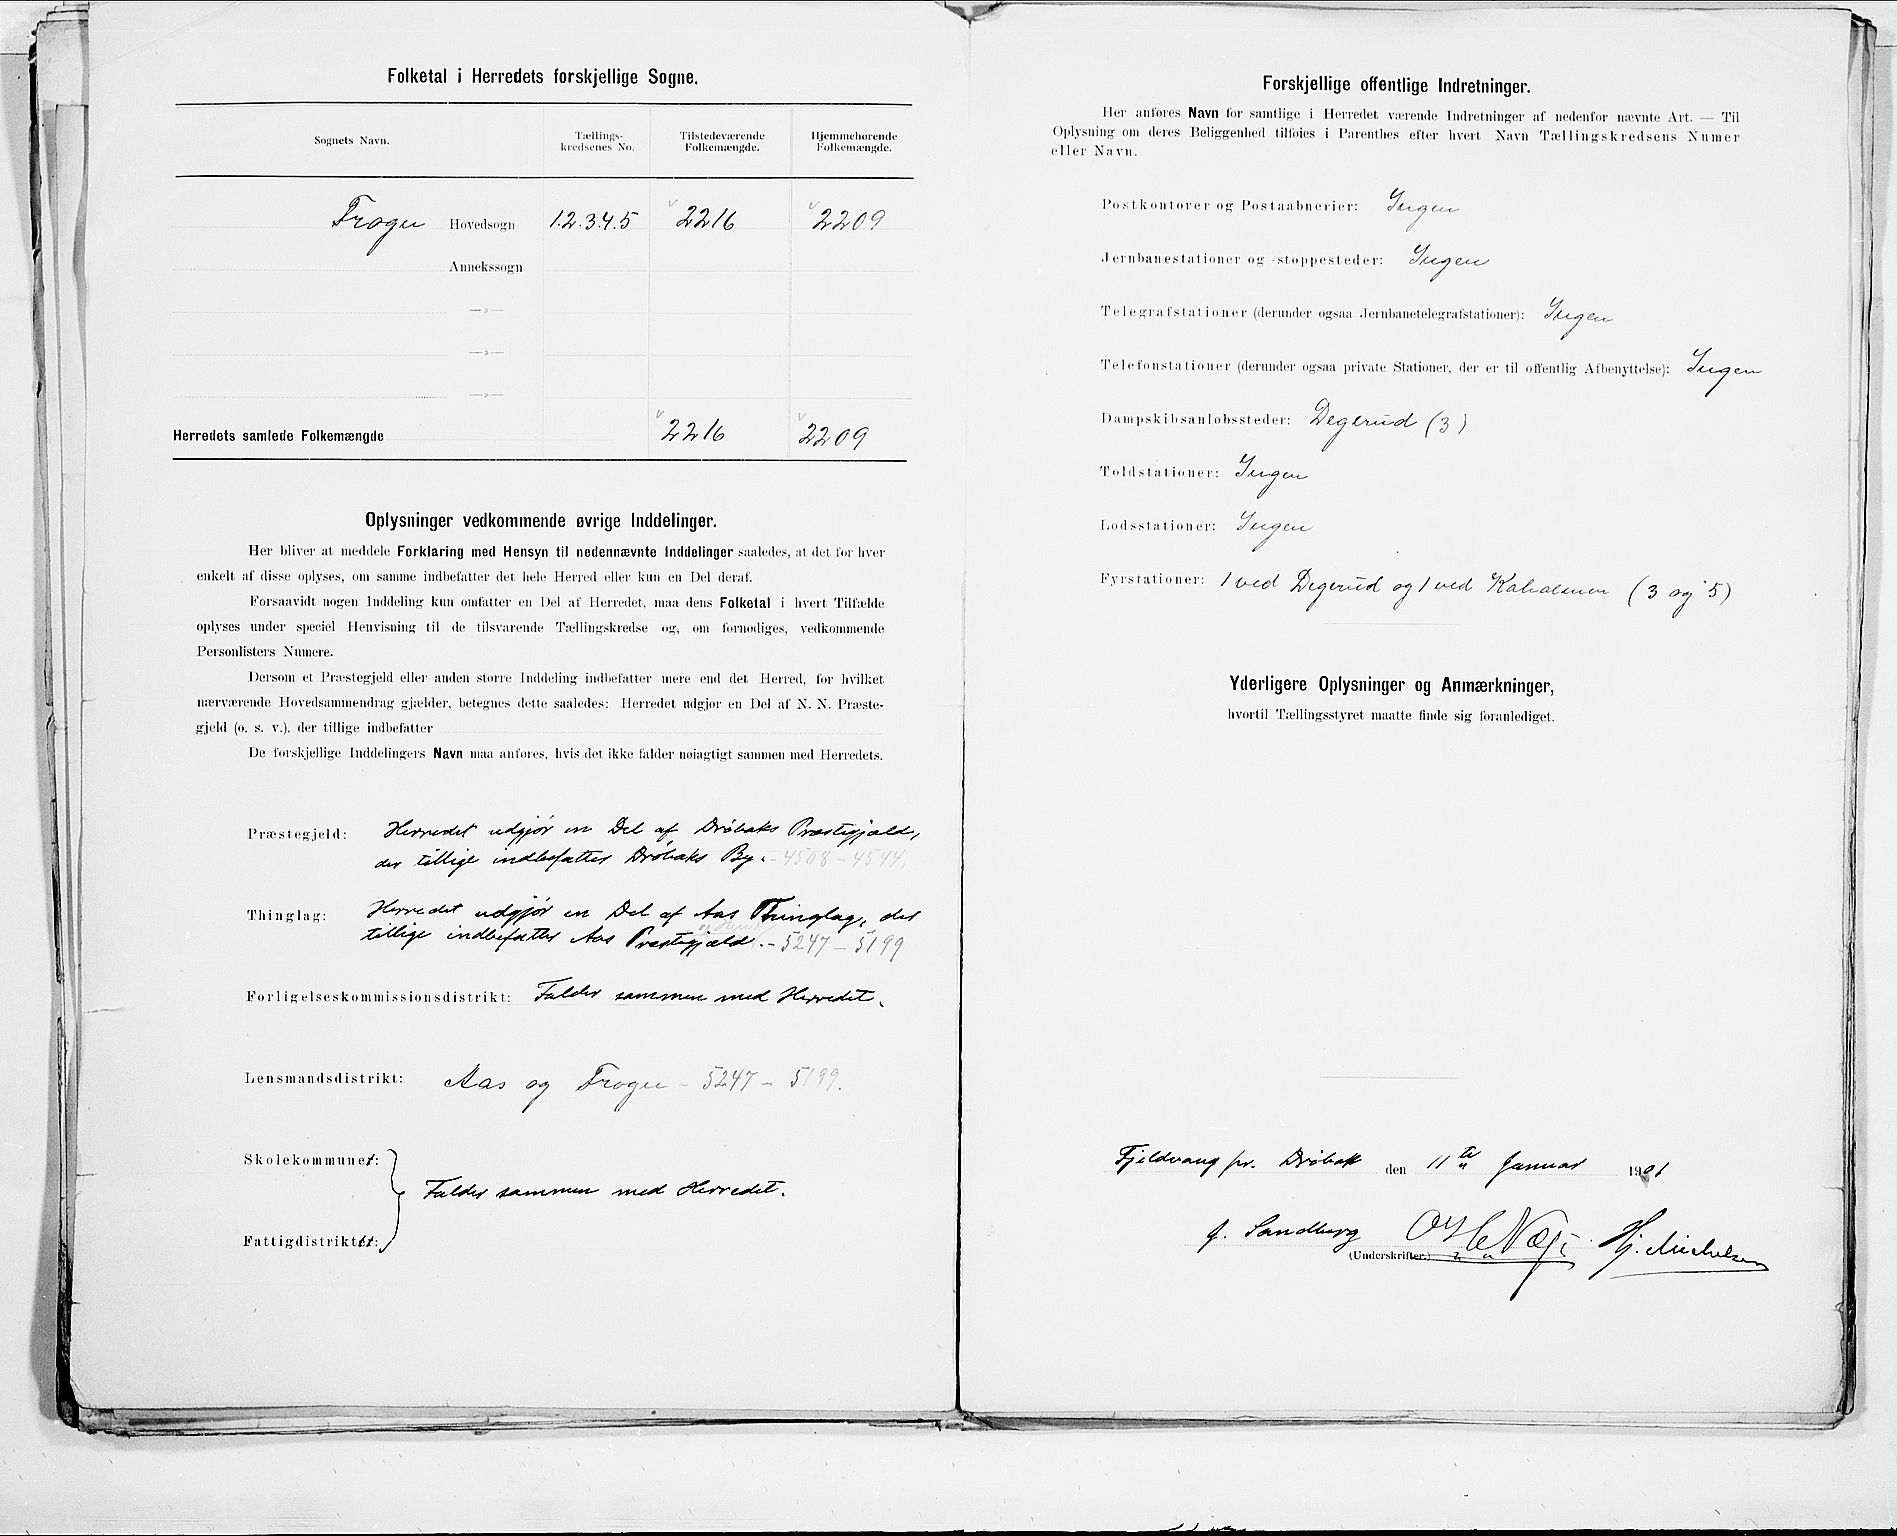 Folketal i Herredets forskjellige Sogne.
Sognets Navn.
Tællings-
kredsenes No.
Tilstedeværende
Folkemængde.
Hjemmehørende
Folkemængde.
Frogn Hovedsogn 1.2.3.4.5 2216 2209
Annekssogn
—»—
—»—
—»—
Herredets samlede Folkemængde 2216 2209
Oplysninger vedkommende øvrige Inddelinger.
Her bliver at meddele Forklaring med Hensyn til nedennævnte Inddelinger saaledes, at det for hver
enkelt af disse oplyses, om samme indbefatter det hele Herred eller kun en Del deraf.
Forsaavidt nogen Inddeling kun omfatter en Del af Herredet, maa dens Folketal i hvert Tilfælde
oplyses under speciel Henvisning til de tilsvarende Tællingskredse og, om fornødiges, vedkommende
Personlisters Numere.
Dersom et Præstegjeld eller anden større Inddeling indbefatter mere end det Herred, for hvilket
nærværende Hovedsammendrag gjælder, betegnes dette saaledes: Herredet udgjør en Del af N. N. Præste-
gjeld (o. s. v.), der tillige indbefatter
De forskjellige Inddelingers Navn maa anføres, hvis det ikke falder nøiagtigt sammen med Herredets.
Præstegjeld: Herredet udgjør en Del af Drøbaks Præstegjæld,
der tillige indbefatter Drøbaks By. - 4508 - 4544.
Thinglag: Herredet udgjør en Del af Aas Thinglag, der
tillige indbefatter Aas Præstegjæld. - 5247 - 5199
Forligelseskommissionsdistrikt: Falder sammen med Herredet.
Lensmandsdistrikt: Aas og Frogn - 5247 - 5199.
Skolekommuner:
Falder sammen med Herredet.
Fattigdistrikter:
Forskjellige offentlige Indretninger.
Her anføres Navn for samtlige i Herredet værende Indretninger af nedenfor nævnte Art. — Til
Oplysning om deres Beliggenhed tilføies i Parenthes efter hvert Navn Tællingskredsens Numer
eller Navn.
Postkontorer og Postaabnerier: Ingen
Jernbanestationer og -stoppesteder: Ingen
Telegrafstationer (derunder ogsaa Jernbanetelegrafstationer): Ingen
Telefonstationer (derunder ogsaa private Stationer, der er til offentlig Afbenyttelse): Ingen
Dampskibsanløbssteder: Degerud (3)
Toldstationer: Ingen
Lodsstationer: Ingen
Fyrstationer: 1 ved Degerud og 1 ved (3 og 5)
Yderligere Oplysninger og Anmærkninger,
hvortil Tællingsstyret maatte finde sig foranlediget.
Fjeldvang pr. Drøbak den 11te Januar 1901
J. Sandberg Hj. Michelsen
(Underskrifter.)